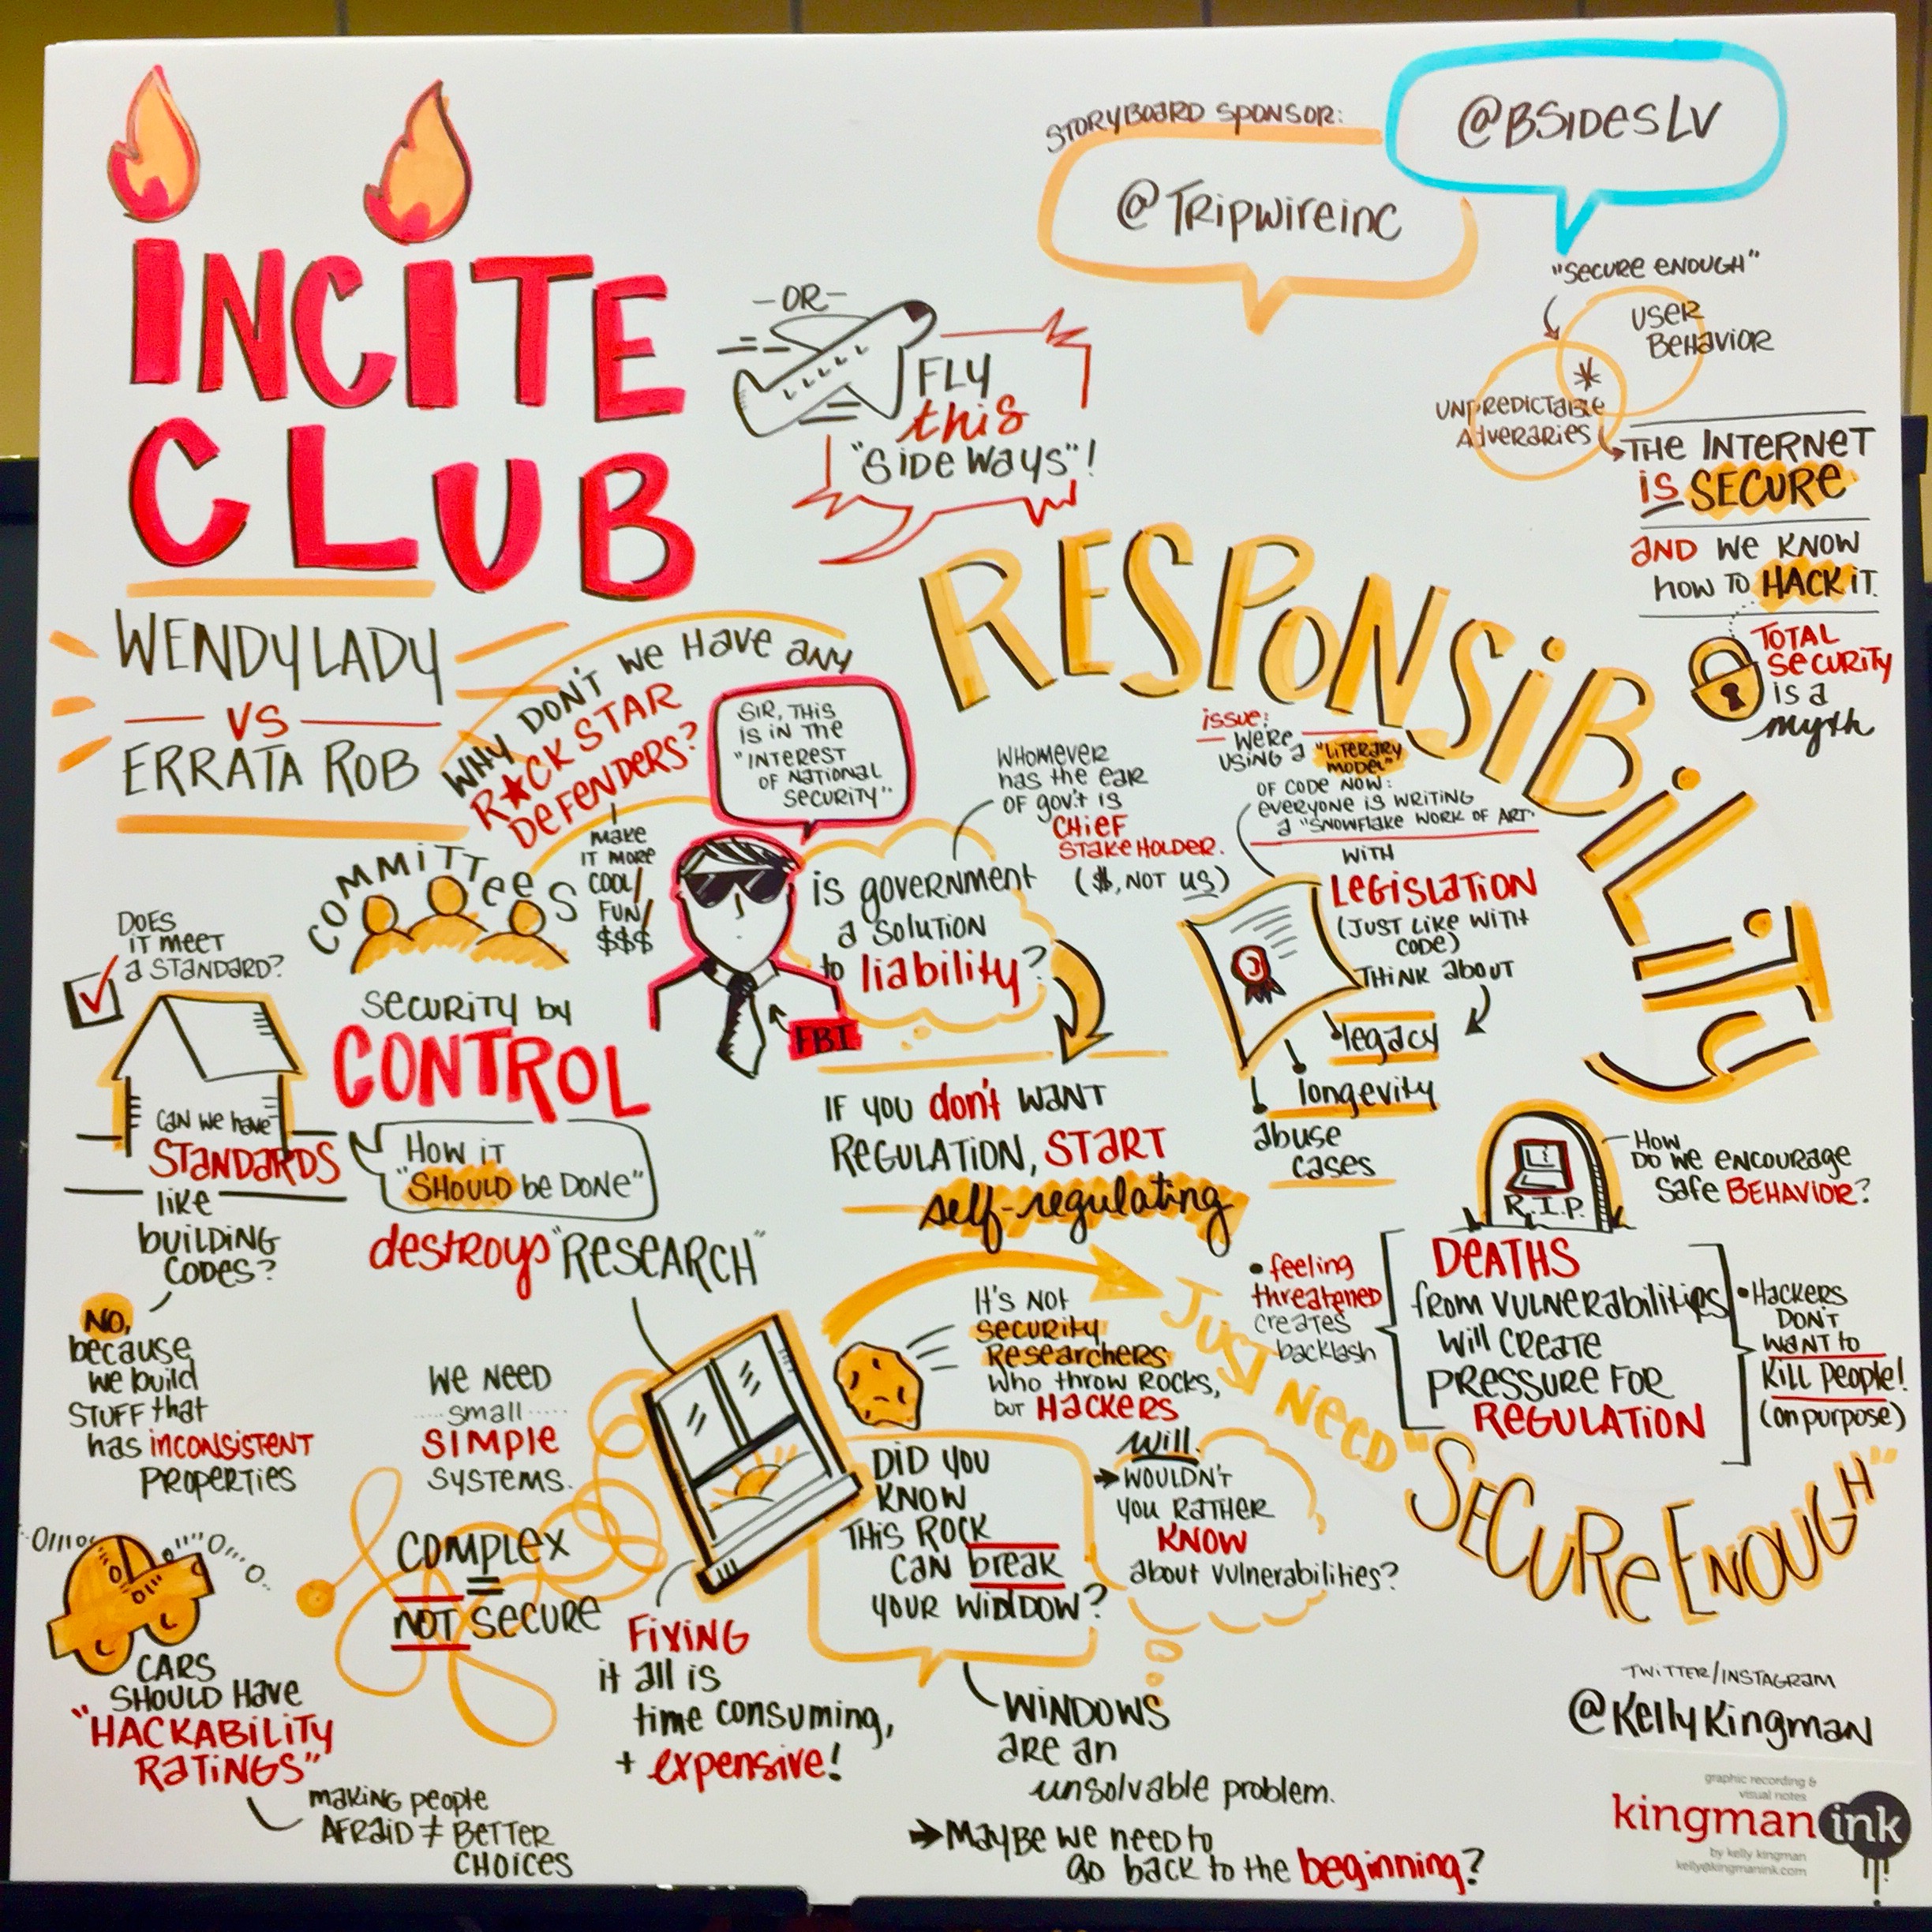 INCITE
CLUB
WENDYLADY
VS
ERRATA ROB
-OR-
FLY
this
"SIDEWAYS"!
STORYBOARD SPONSOR:
@TRIPWIREINC
@BSIDESLV
"SECURE ENOUGH"
USER
BEHAVIOR
*
UNPREDICTABLE
ADVERARIES
THE INTERNET
IS SECURE
AND WE KNOW
HOW TO HACK IT.
TOTAL
SECURITY
IS A
myth
RESPONSIBILITY
WHY DON'T WE HAVE ANY
R★CK STAR
DEFENDERS?
MAKE
IT MORE
COOL/
FUN/
$$$
SIR, THIS
IS IN THE
"INTEREST
OF NATIONAL
SECURITY"
FBI
WHOMEVER
HAS THE EAR
OF GOV'T IS
CHIEF
STAKEHOLDER.
($, NOT US)
IS GOVERNMENT
A SOLUTION
TO liability?
issue:
WERE
USING A "LITERARY
MODEL"
OF CODE NOW:
EVERYONE IS WRITING
A "SNOWFLAKE WORK OF ART"
WITH
LEGISLATION
(JUST LIKE WITH
CODE)
THINK ABOUT
legacy
longevity
abuse
cases
COMMITTEES
DOES
IT MEET
A STANDARD?
SECURITY by
CONTROL
CAN WE HAVE
STANDARDS
like
BUILDING
CODES?
HOW IT
"SHOULD be DONE"
destroys "RESEARCH"
IF YOU don't WANT
REGULATION, START
self-regulating
R.I.P.
HOW
DO WE ENCOURAGE
SAFE BEHAVIOR?
• feeling
threatened
creates
backlash
DEATHS
from VULNERABILITIES
WILL CREATE
PRESSURE FOR
REGULATION
• HACKERS
DON'T
WANT TO
KILL PEOPLE!
(on purpose)
NO,
because
we build
STUFF that
has INCONSISTENT
PROPERTIES
WE NEED
small
SIMPLE
SYSTEMS.
IT'S NOT
SECURITY
RESEARCHERS
WHO THROW ROCKS,
but HACKERS
Will.
JUST NEED
"SECURE ENOUGH"
DID YOU
KNOW
THIS ROCK
CAN break
YOUR WINDOW?
WOULDN'T
YOU RATHER
KNOW
about vulnerabilities?
COMPLEX
=
NOT SECURE
CARS
SHOULD HAVE
"HACKABILITY
RATINGS"
MAKING PEOPLE
AFRAID ≠ BETTER
CHOICES
FIXING
it all is
time consuming,
+ expensive!
WINDOWS
ARE AN
unsolvable problem.
MAYBE WE NEED TO
GO BACK TO THE beginning?
TWITTER/INSTAGRAM
@KELLYKINGMAN
graphic recording &
visual notes
kingman ink
by kelly kingman
kelly@kingmanink.com